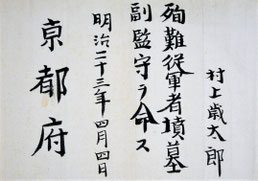 村上歳太郎
殉難従軍者墳墓
副監守ヲ命ス
明治二十三年四月四日
京都府